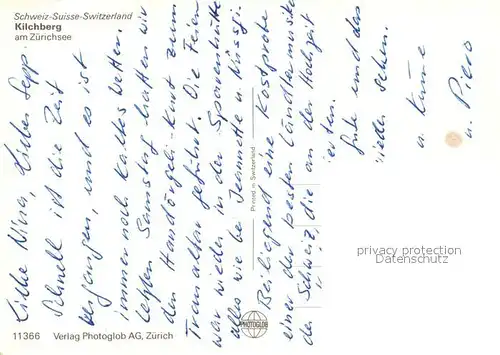 Schweiz-Suisse-Switzerland
Kilchberg
am Zürichsee
Liebe Nina, Lieber Sepp.
Schnell ist die Zeit
vergangen, und es ist
immer noch kaltes Wetter.
Letzten Samstag hatten wir
den Handörgeli-Kurt zum
Traualtar geführt. Die Feier
war wieder in der
alles wie bei Jeannette u.
Beiliegend eine Kostprobe
einer der besten Ländlermusik
der Schweiz, die an der Hochzeit
gute und das
wieder sehen.
a.
u. Piero
Printed in Switzerland
PHOTOGLOB
11366 Verlag Photoglob AG, Zürich
privacy protection
Datenschutz